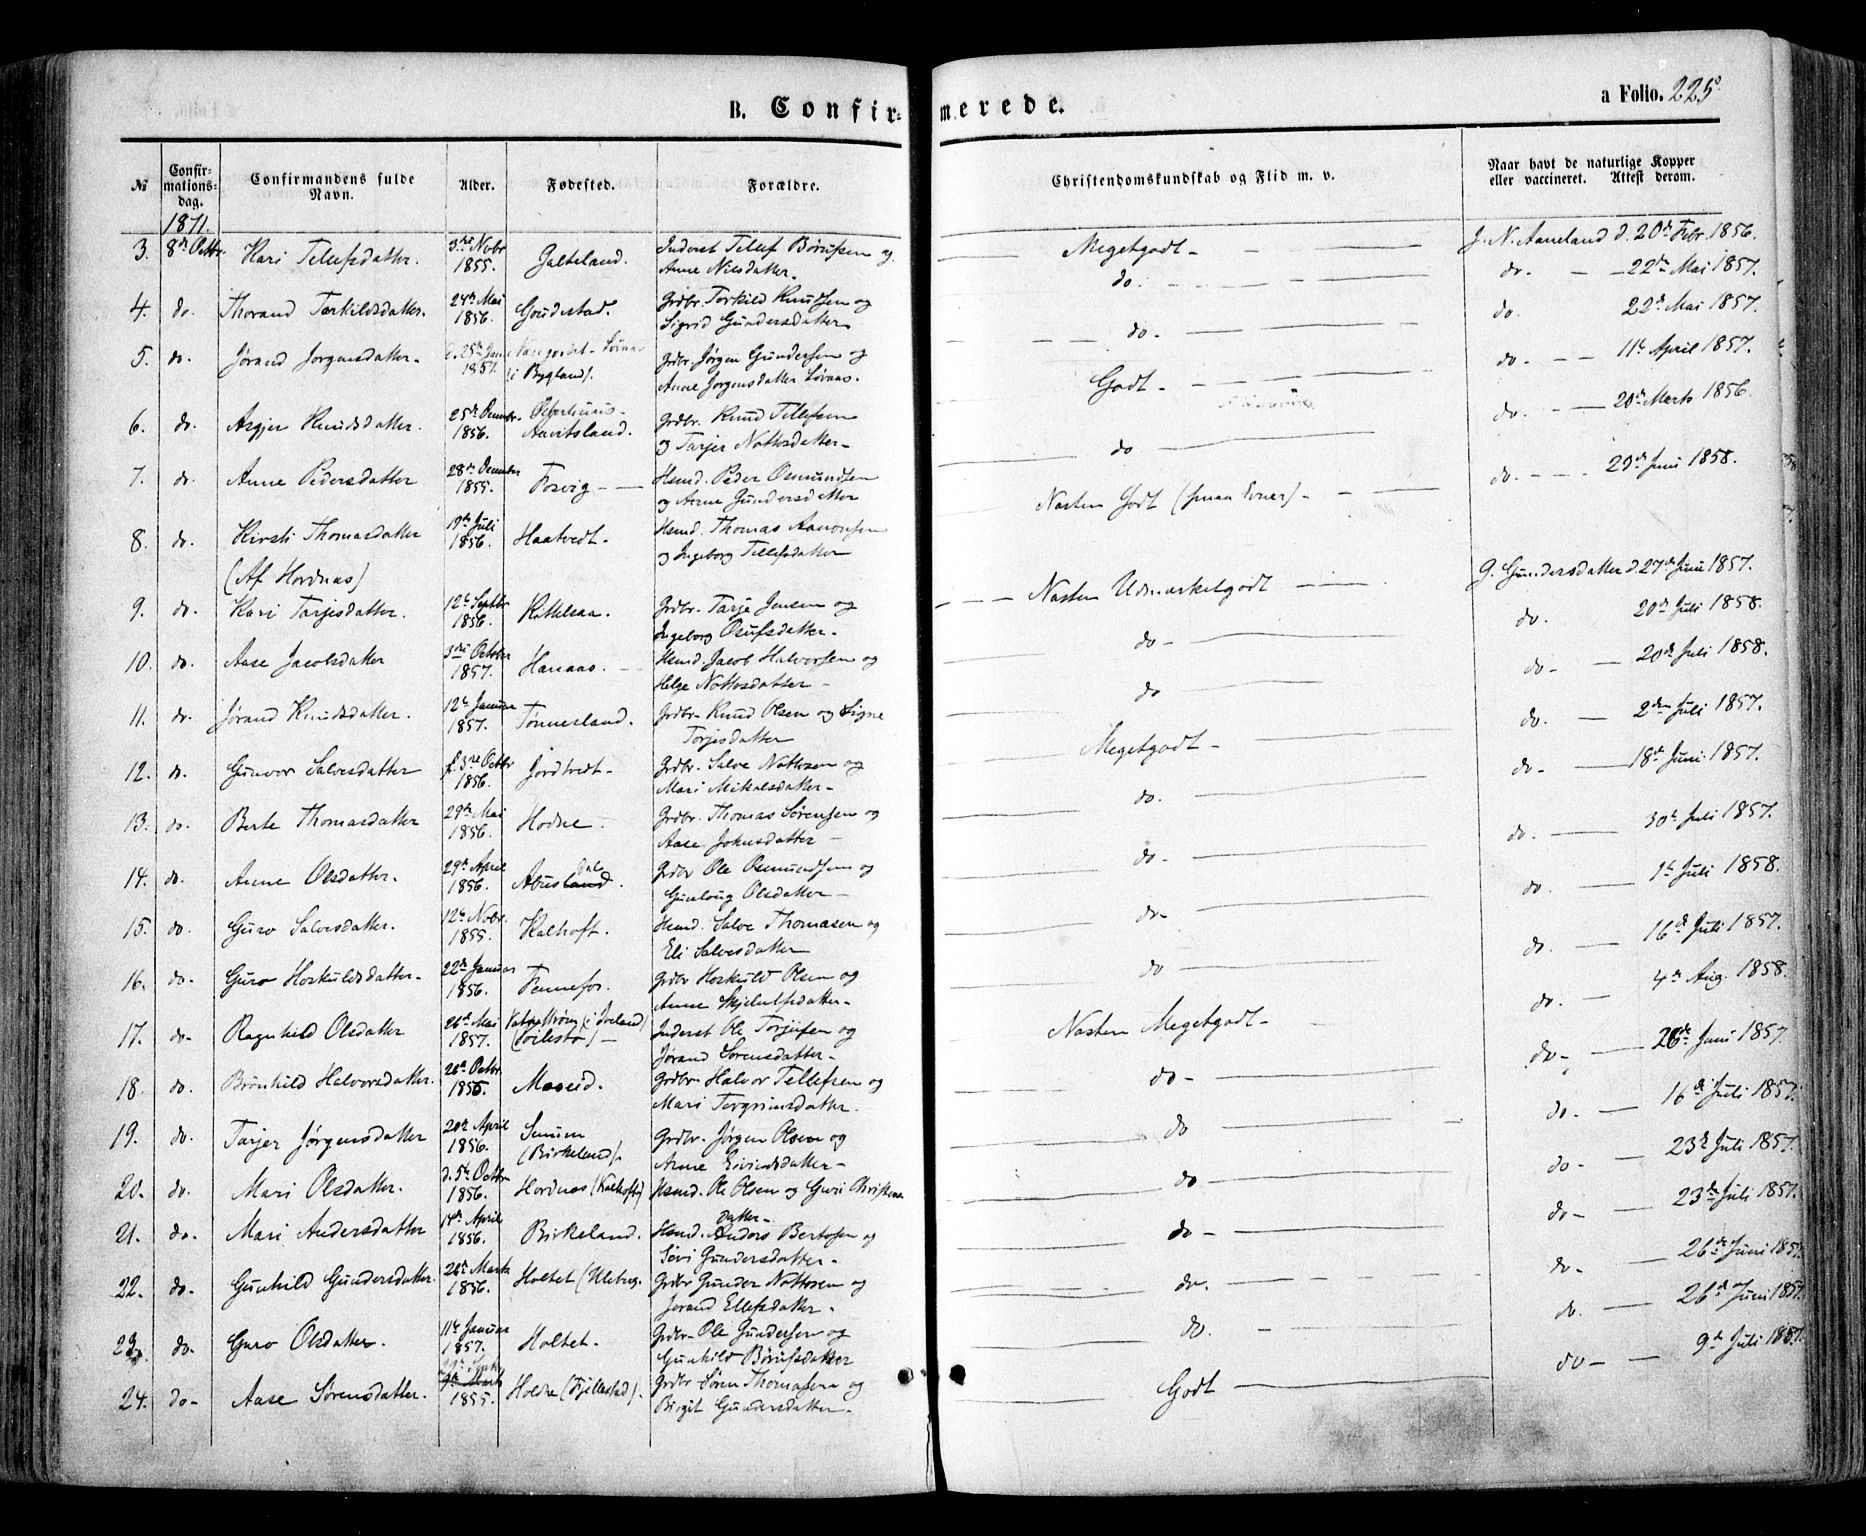 B. Confir-
merede.
a Folio. 225
№
Confir-
mations-
dag.
Confirmandens fulde
Navn.
Alder.
Fødested.
Forældre.
Christendomskundskab og Flid m. v.
Naar havt de naturlige Kopper
eller vaccineret. Attest derom.
1871.
3. 8de Octbr. Kari Tellefsdatter. 3die Novbr 1855. Galteland. Inderst Tellef Børufsen og
Anne Nilsdatter. Megetgodt - J. N. Aaneland d. 20de Febr. 1856.
4. do. Thorand Torkildsdatter. 24de Mai 1856. Grdbr. Torkild Knudsen og
Sigrid Gundersdatter do. do. 22de Mai 1857.
5. do. Jørand Jørgensdatter. 1857. (i Bygland). Grdbr. Jørgen Gundersen og
Anne Jørgensdatter do. do. 22de Mai 1857.
6. do. Asgjer Knudsdatter. 25de Decembr. 1856. Aavitsland. Grdbr. Knud Tellefsen
og Tarjer Nottosdatter Godt do. 11te April 1857.
7. do. Anne Pedersdatter 28de December 1855. Fosvig Hsmd. Peder Osmundsen
og Anne Gundersdatter do do. 20de Marts 1856
8. do. Kirsti Thomasdatter 19de Juli 1856. Haatvedt. Hsmd. Thomas Aanonsen
og Ingeborg Tellefsdatter Næsten Godt (smaa Evner) do. 29de Juni 1858.
(Af Hordnæs)
9. do. Kari Tarjesdatter. 12te Septbr 1856. Kittelsaa. Grdbr. Tarje Jensen og
Ingeborg Osufsdatter Næsten Udmærketgodt G. Gundersdatter d. 27de Juni 1857.
10. do. Aase Jacobsdatter 3die October 1857. Hanaas. Hsmd. Jacob Halvorsen og
Helge Nottosdatter do do. 20de Juli 1858.
11. do. Jørand Knudsdatter. 12te Januar 1857. Tønnesland. Grdbr. Knud Olsen og Signe
Torjesdatter do do 20de Juli 1858.
12. do. Gunvor Salvesdatter f. 3die Octbr 1856. Jordtvedt. Grdbr. Salve Nottosen og
Mari Mikalsdatter Megetgodt do. 2den Juli 1857.
13. do. Berte Thomasdatter 29de Mai 1856. Hodne. Grdbr. Thomas Sørensen og
Aase Johnsdatter do. do 18de Juni 1857.
14. do. Anne Olsdatter. 29de April 1856. Abusland. dal Grdbr Ole Osmundsen og
Gunloug Olsdatter do. do. 30te Juli 1857.
15. do. Guro Salvesdatter. 12te Novbr. 1855. Kalhoft. Hsmd. Salve Thomasen og
Eli Salvesdatter do do. 1ste Juli 1858.
16. do. Guro Hoskuldsdatter. 22de Januar 1856. Fennefos. Grdbr Hoskuld Olsen og
Anne Skjelulfsdatter do do. 16de Juli 1857.
17. do. Ragnhild Olsdatter 26de Mai 1857. Vatnestrøm (i Iveland) Inderst Ole Torjusen og
Jørand Sørensdatter Næsten Megetgodt do. 4de Aug. 1858.
18. do. Brønhild Halvorsdatter. 26de Octbr. 1856. Moseid. Grdbr. Halvor Tellefsen og
Mari Torgrimsdatter. do do 26de Juni 1857.
19. do. Tarjer Jørgensdatter 20de April 1856. Senum (Birkeland). Grdbr. Jørgen Olsen og
Anne Eivindsdatter do do 16de Juli 1857.
20. do. Mari Olsdatter. d. 5te Octbr 1856. Hordnæs (Kalhoft) Hsmd. Ole Olsen og Guri Christens-
datter do do 23de Juli 1857.
21. do. Mari Andersdatter 14de April 1856. Birkeland. Hsmd. Anders Bertosen og
Sevi Gundersdatter do do 23de Juli 1857.
22. do. Gunhild Gundersdatter. 26de Marts 1856. Holtet Grdbr Gunder Nottosen og
Jorand Ellefsdatter do. do 26de Juni 1857.
23. do. Guro Olsdatter. 11te Januar 1857. Holtet. Grdbr. Ole Gundersen og
Gunhild Børufsdatter do. do. 26de Juni 1857.
24. do. Aase Sørensdatter. 1855. Hodne (Fjellestad). Grdbr Søren Thomasen og
Birgit Gundersdatter. Godt do 9de Juli 1857.